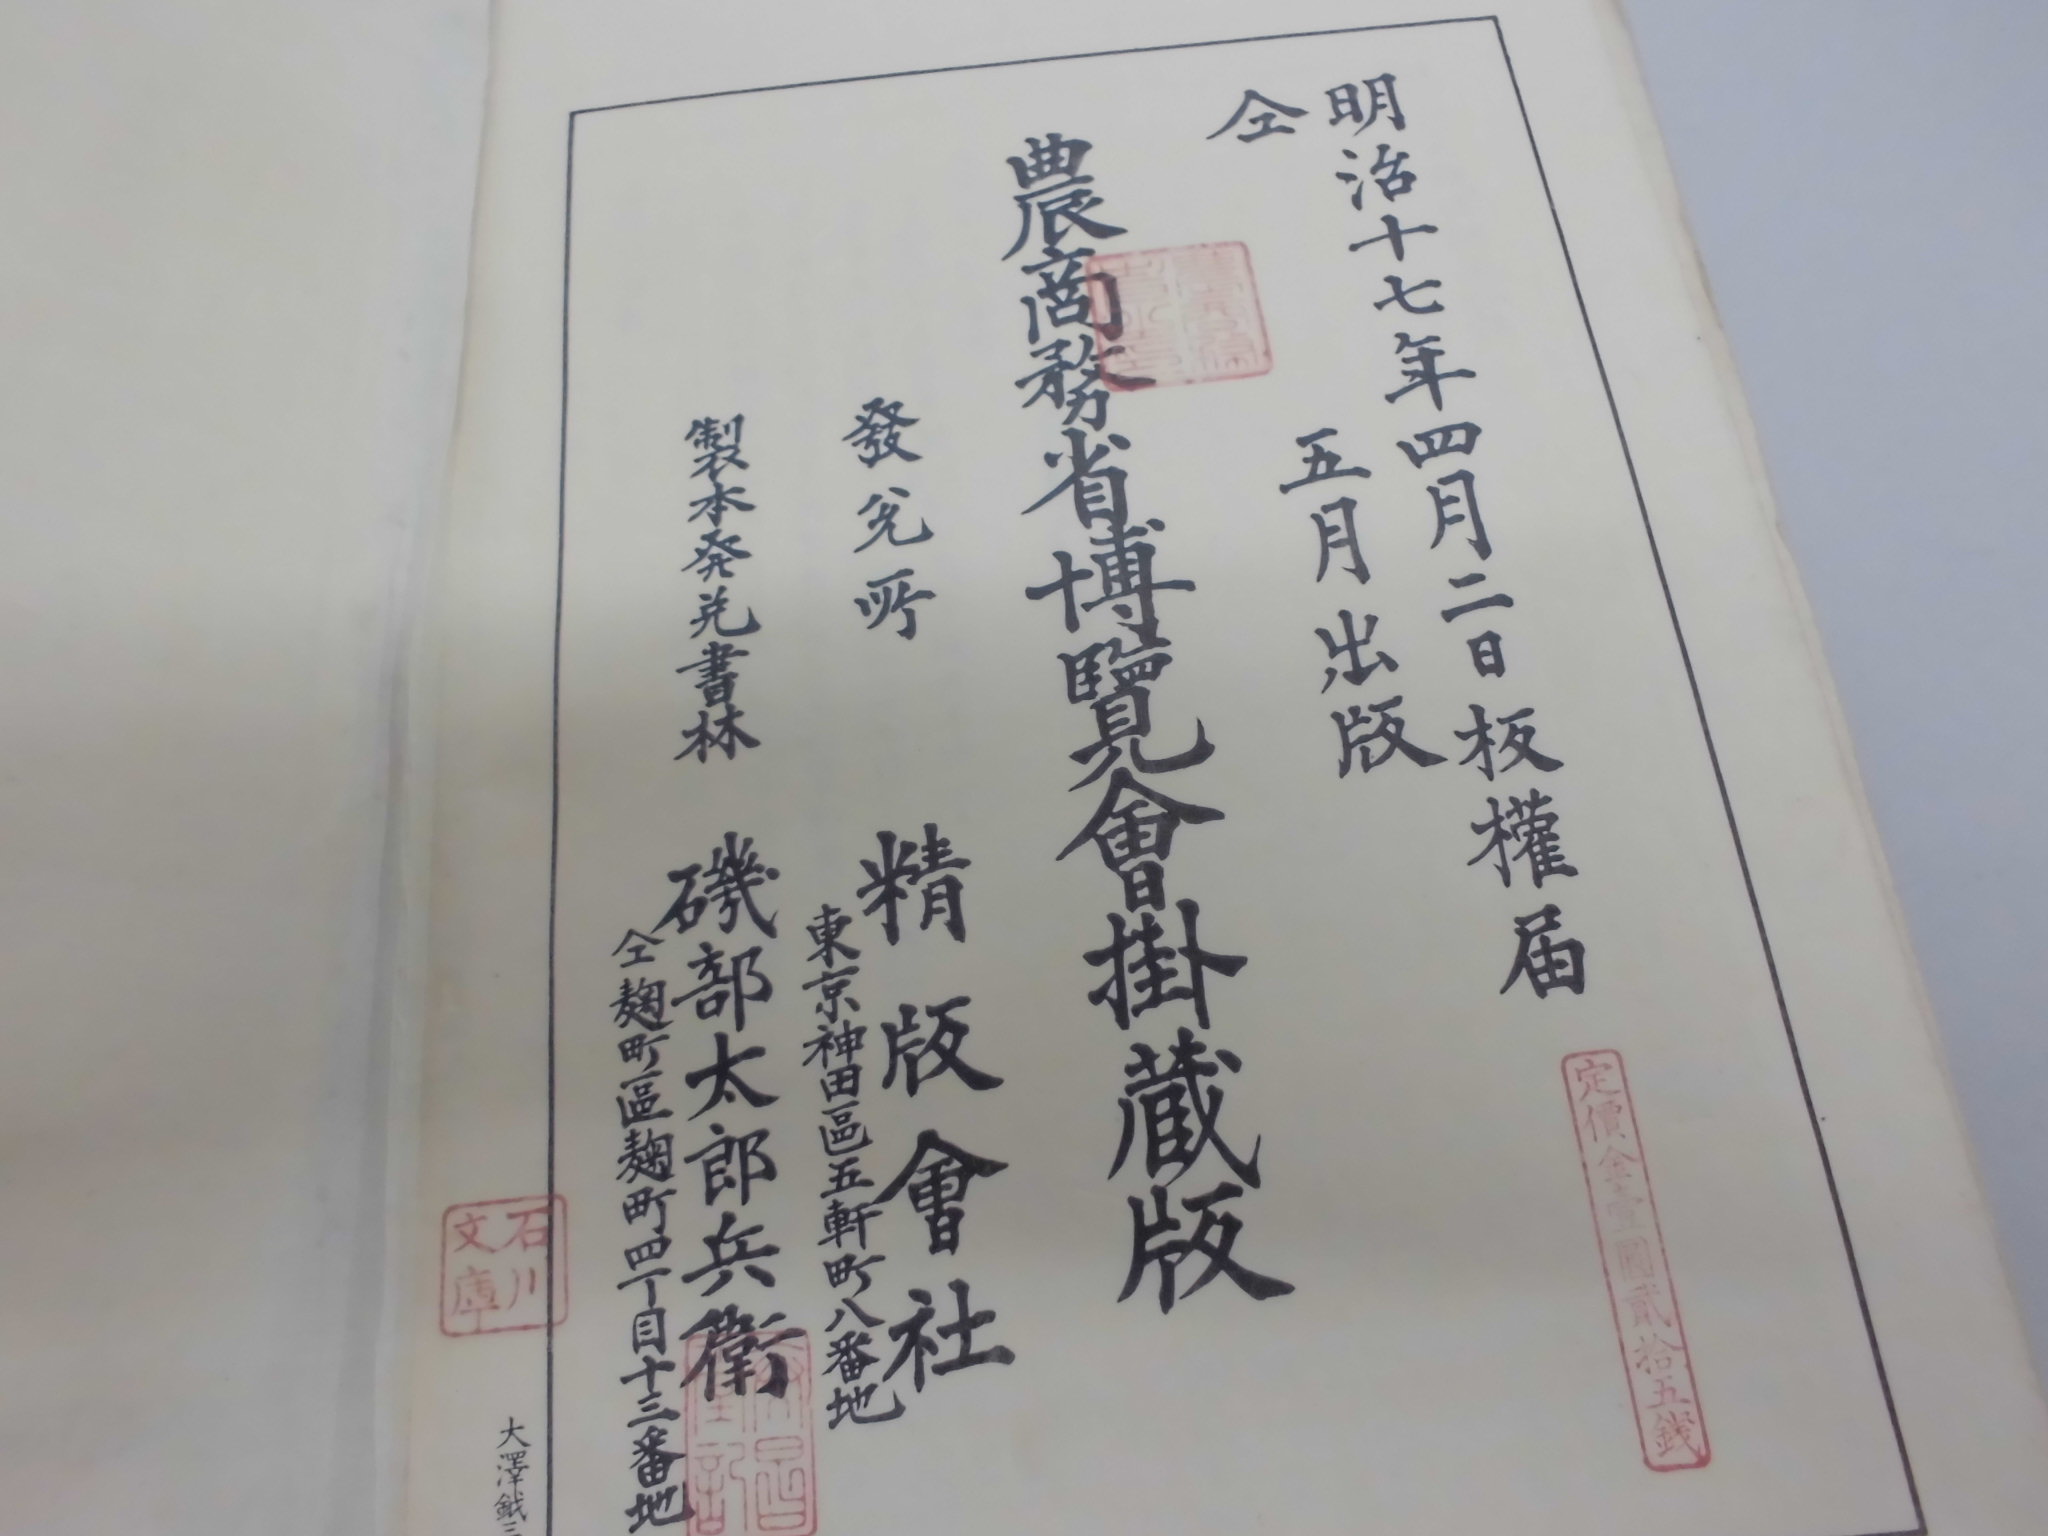 明治十七年四月二日板權届
仝　五月出版
農商務省博覽會掛藏版
發兌所　精版會社
東京神田區五軒町八番地
製本発兌書林　磯部太郎兵衛
仝麹町區麹町四丁目十三番地
定價金壹圓貳拾五銭
石川
文庫
大澤鉞三